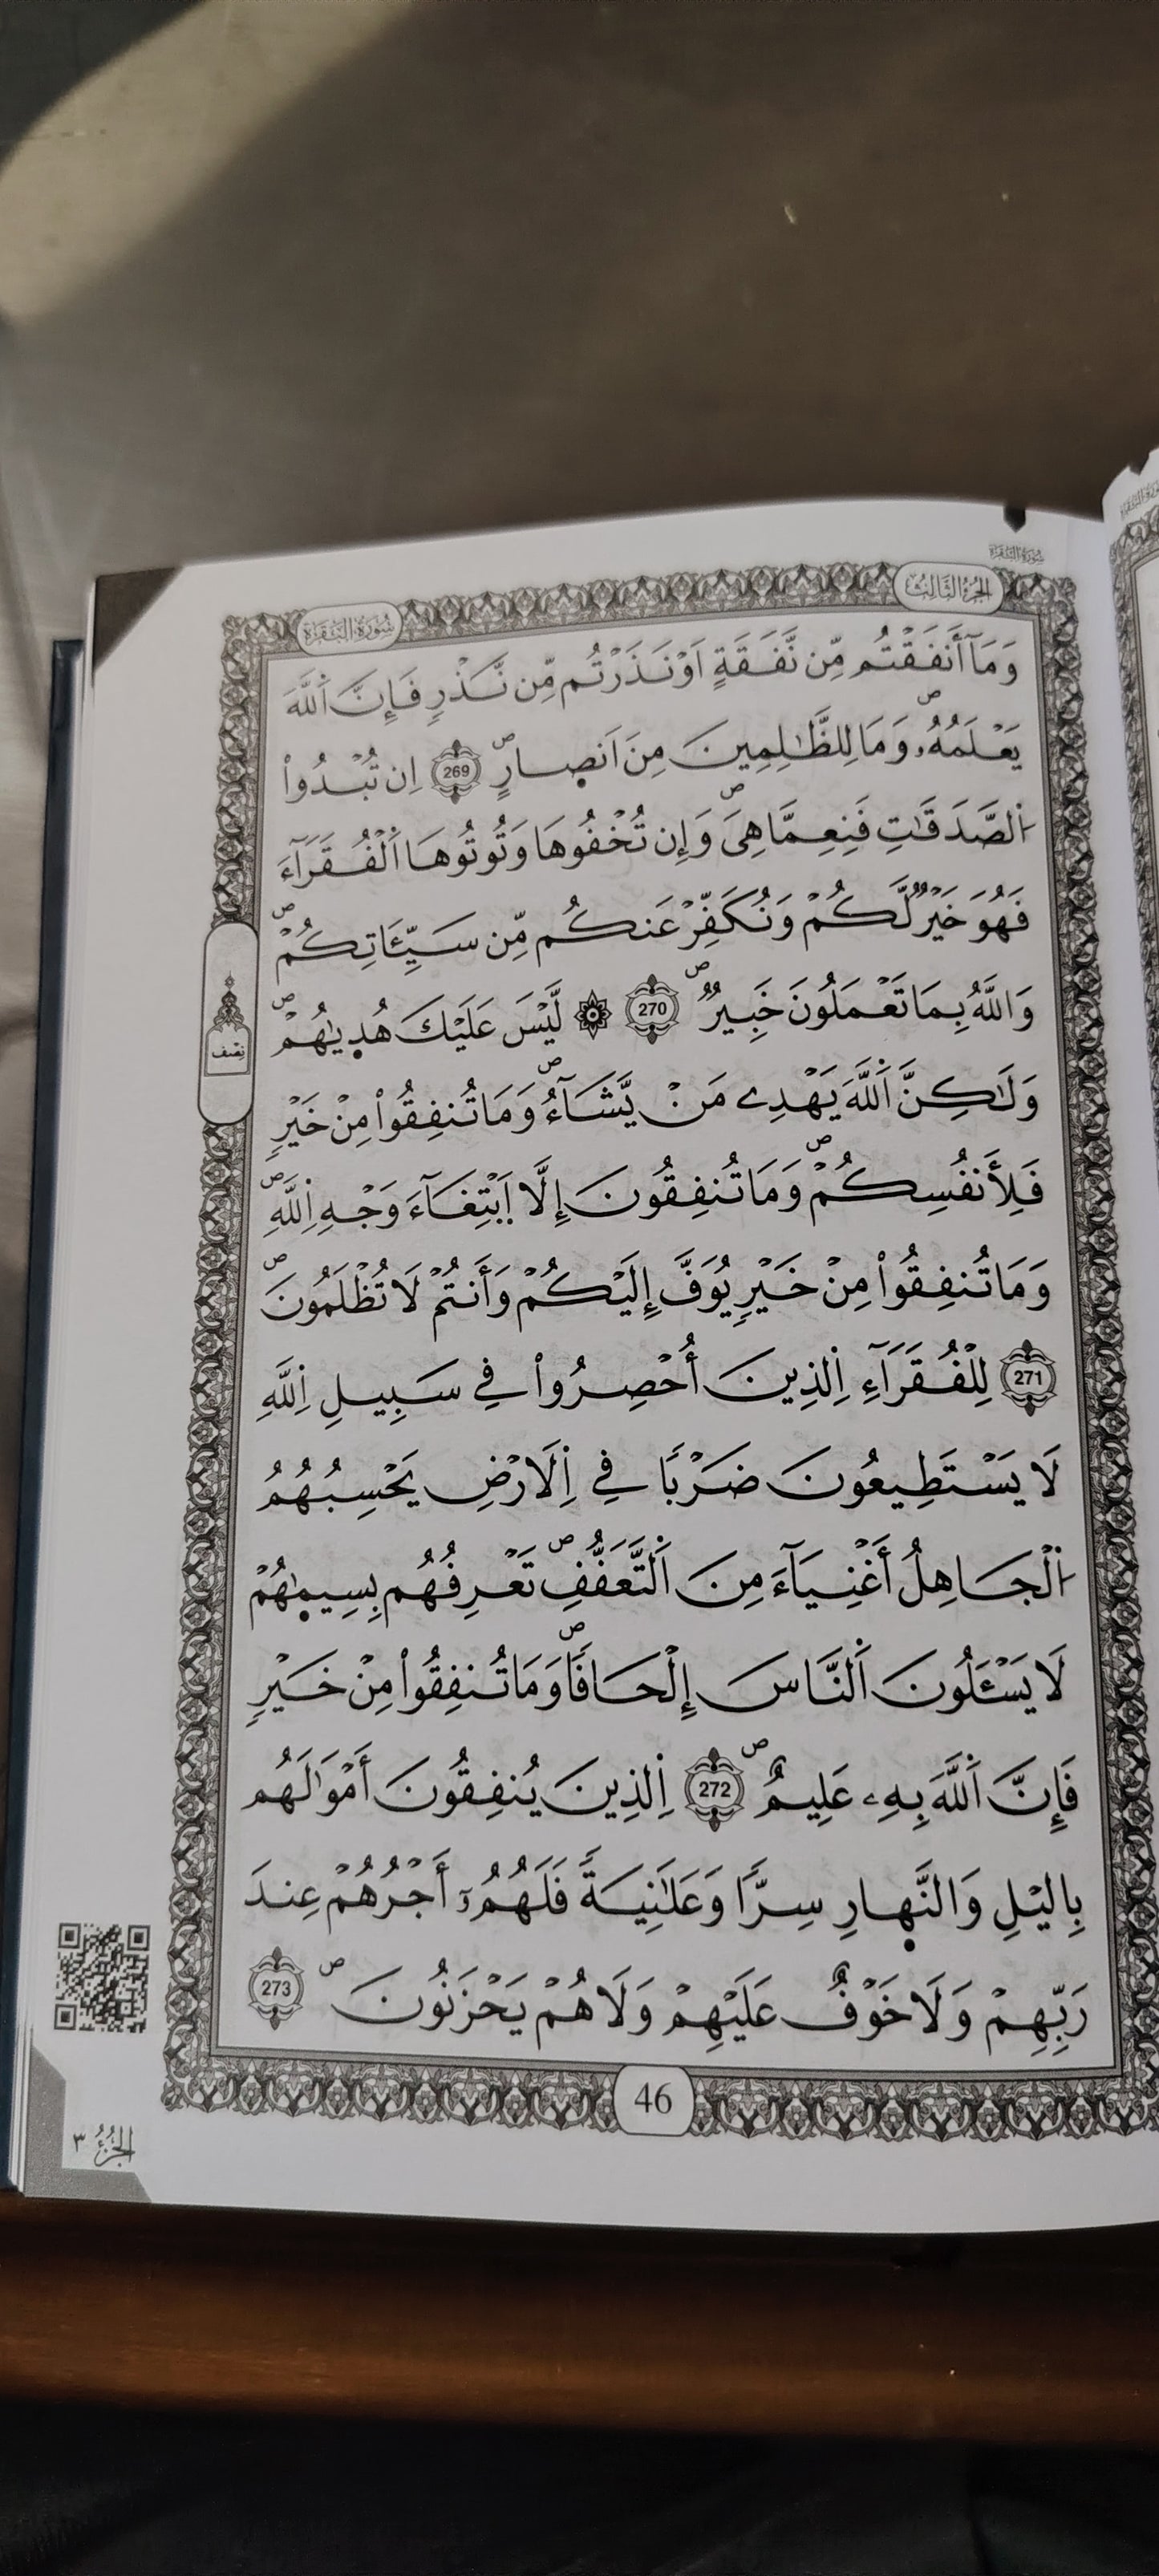 سُورَةُ البَقَرَة
الجُزْءُ الثَّالِثُ
سُورَةُ البَقَرَة
وَمَآ أَنفَقْتُم مِّن نَّفَقَةٍ اَوْ نَذَرْتُم مِّن نَّذْرٍ فَإِنَّ اَ۬للَّهَ
يَعْلَمُهُۥ ۖ وَمَا لِلظَّٰلِمِينَ مِنَ اَنصٍ۪ارٍ ۖ 269 اِن تُبْدُواْ
اُ۬لصَّدَقَٰتِ فَنِعِمَّا هِيَ ۖ وَإِن تُخْفُوهَا وَتُوتُوهَا اَ۬لْفُقَرَآءَ
فَهُوَ خَيْرٞ لَّكُمْ وَنُكَفِّرْ عَنكُم مِّن سَيِّـَٔاتِكُمْ ۖ
وَاللَّهُ بِمَا تَعْمَلُونَ خَبِيرٞ ۖ 270 ۞ لَّيْسَ عَلَيْكَ هُد۪يٰهُمْ ۖ
وَلَٰكِنَّ اَ۬للَّهَ يَهْدِے مَنْ يَّشَآءُ ۖ وَمَا تُنفِقُواْ مِنْ خَيْرٍ
فَلِأَنفُسِكُمْ ۖ وَمَا تُنفِقُونَ إِلَّا اَ۪بْتِغَآءَ وَجْهِ اِ۬للَّهِ ۖ
وَمَا تُنفِقُواْ مِنْ خَيْرٍ يُوَفَّ إِلَيْكُمْ وَأَنتُمْ لَا تُظْلَمُونَ ۖ
271 لِلْفُقَرَآءِ اِ۬لذِينَ أُحْصِرُواْ فِے سَبِيلِ اِ۬للَّهِ
لَا يَسْتَطِيعُونَ ضَرْبٗا فِے اِ۬لَارْضِ يَحْسِبُهُمُ
اُ۬لْجَاهِلُ أَغْنِيَآءَ مِنَ اَ۬لتَّعَفُّفِ ۖ تَعْرِفُهُم بِسِيمٰ۪هُمْ
لَا يَسْـَٔلُونَ اَ۬لنَّاسَ إِلْحَافٗا ۖ وَمَا تُنفِقُواْ مِنْ خَيْرٍ
فَإِنَّ اَ۬للَّهَ بِهِۦ عَلِيمٌ ۖ 272 اِ۬لذِينَ يُنفِقُونَ أَمْوَٰلَهُم
بِالَيْلِ وَالنَّه۪ارِ سِرّٗا وَعَلَٰنِيَةٗ فَلَهُمُۥٓ أَجْرُهُمْ عِندَ
رَبِّهِمْ وَلَا خَوْفٌ عَلَيْهِمْ وَلَا هُمْ يَحْزَنُونَ ۖ 273
نِصْف
46
الجُزْءُ ٣